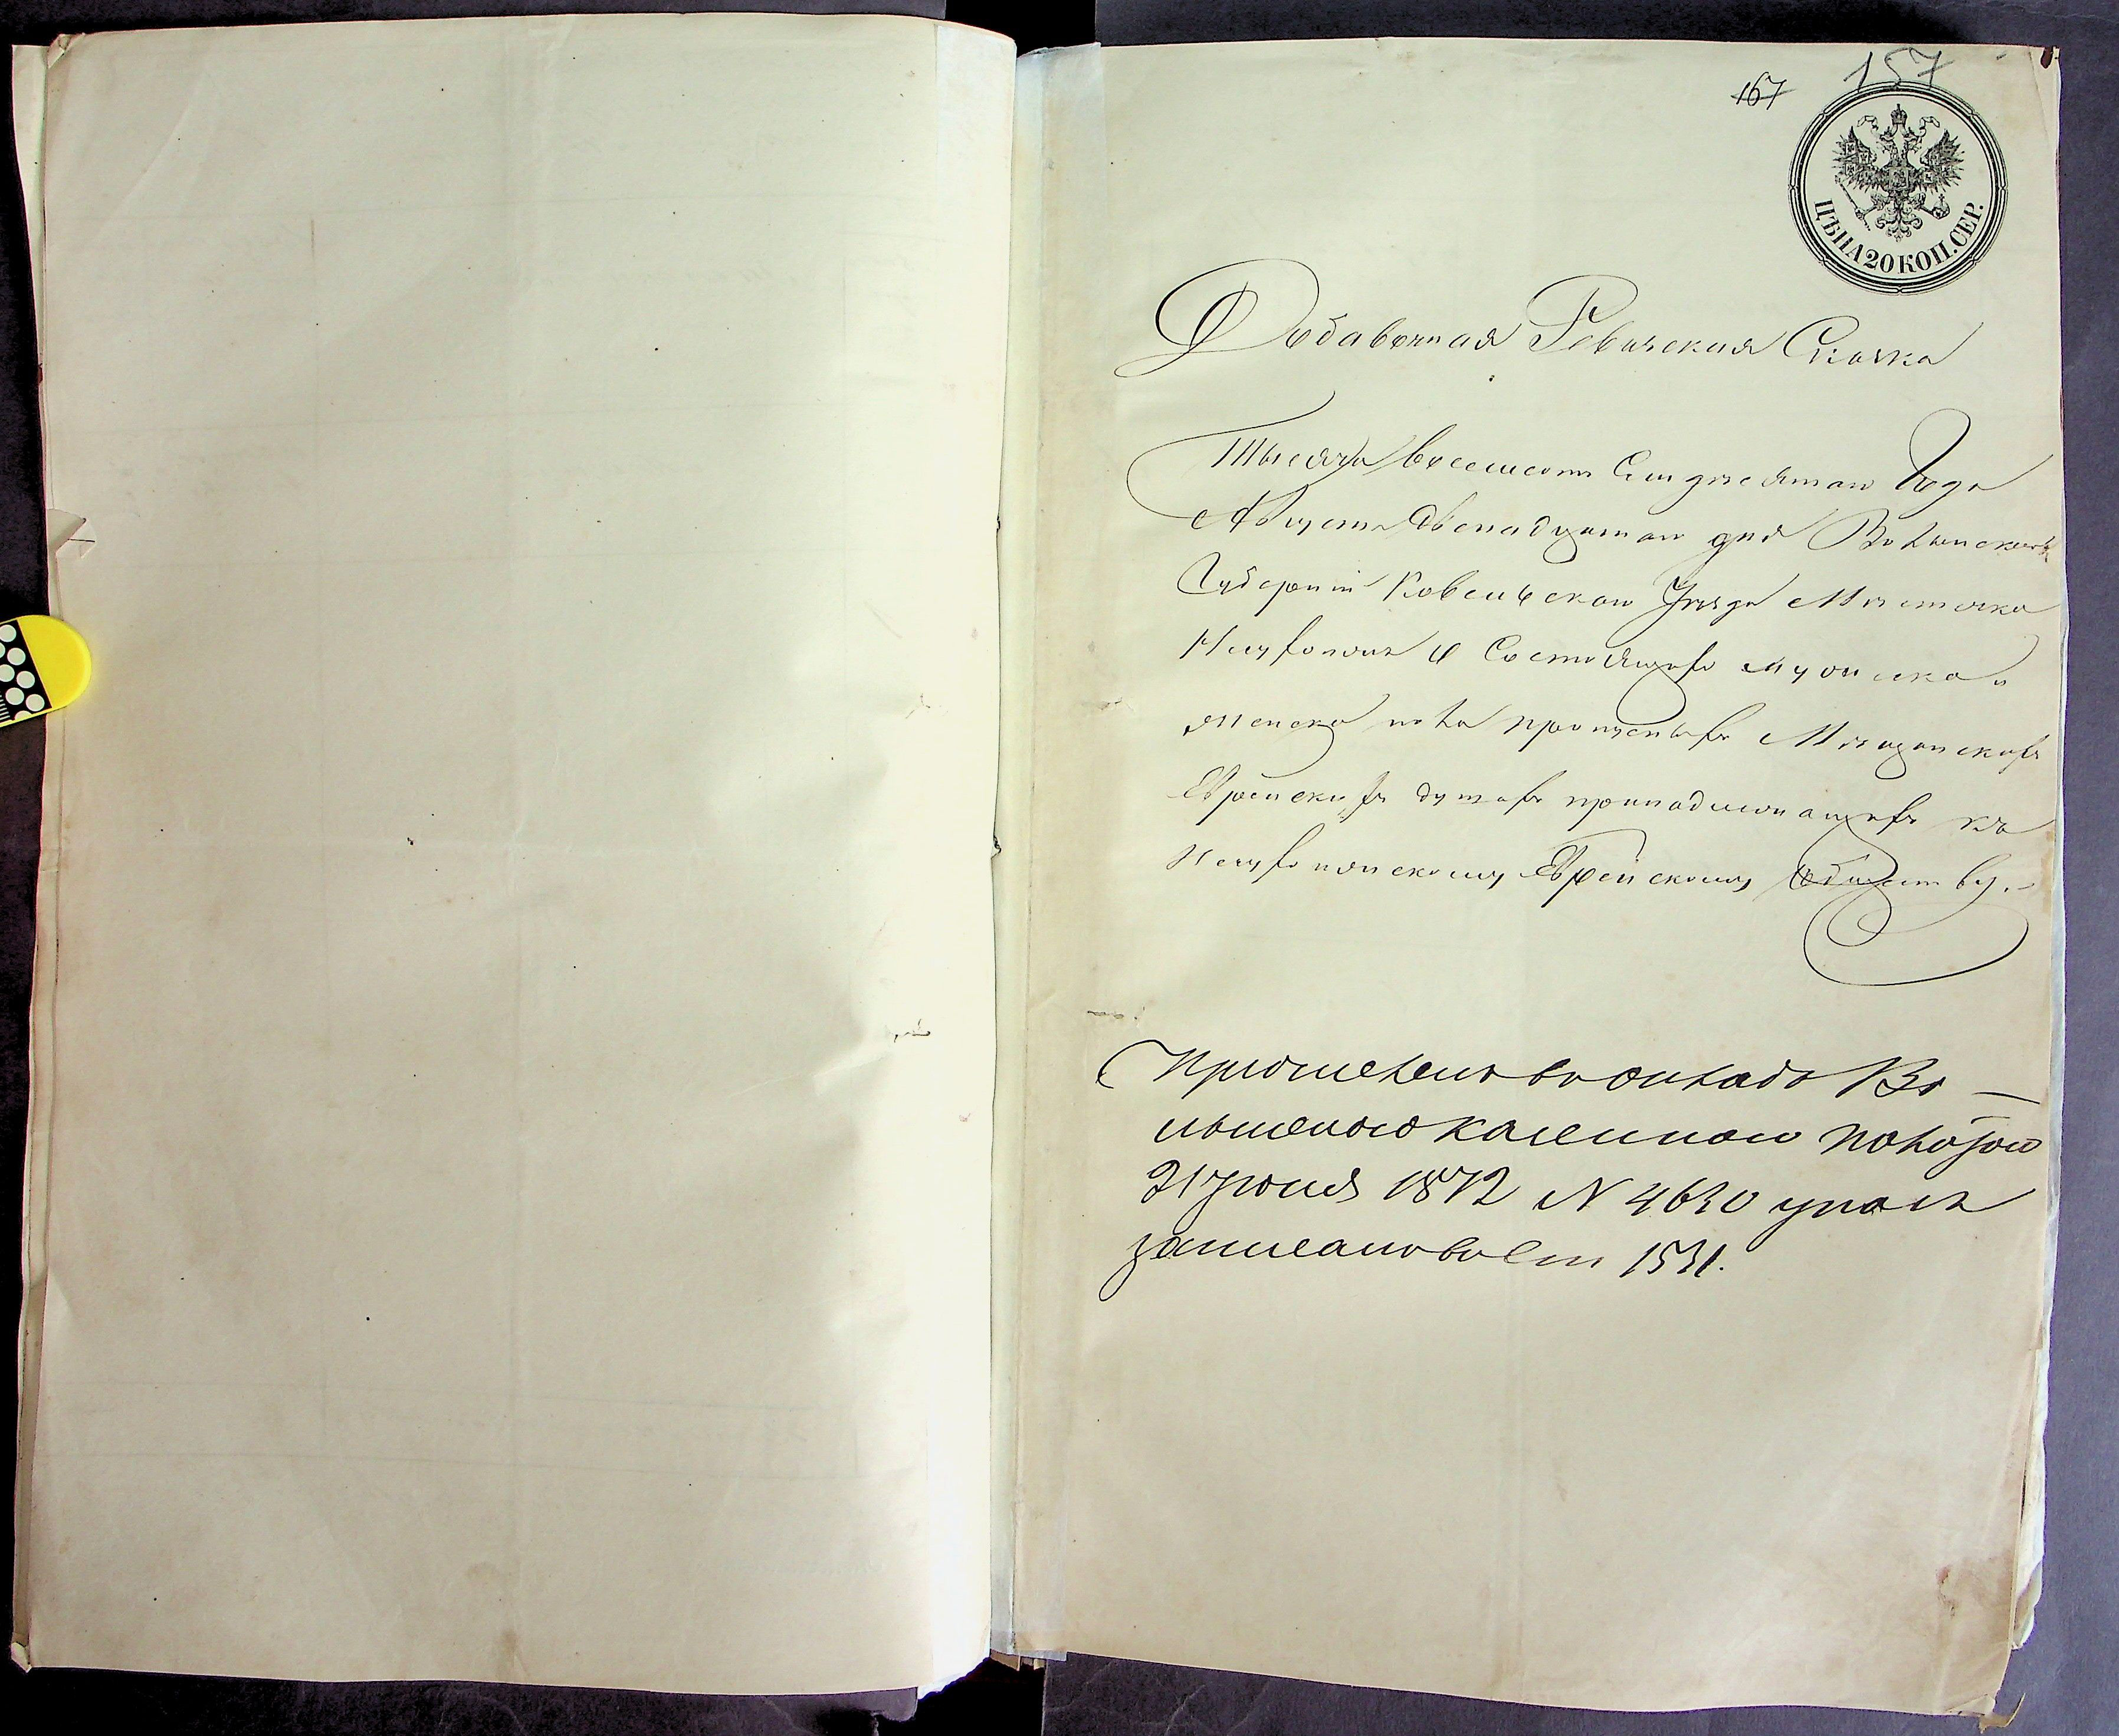 157
167
ЦѢНА 20 КОП. СЕР.
Добавочная Ревизская Сказка
Тысяча восемсотъ Семдесятаго Года
Августа Двенадцатаго дня Волынской
Губерніи Ковельскаго Уезда Местечка
Несухоижъ о Состоящихъ мужеска и
женска пола пропущенныхъ Мещанскихъ
Еврейскихъ душахъ принадлежащихъ къ
Несухоижскому Еврейскому Обществу.
Причислено въ окладъ Во-
лынскою казенною палатою
1872 N 4630 указъ
записано въ ст 1531.